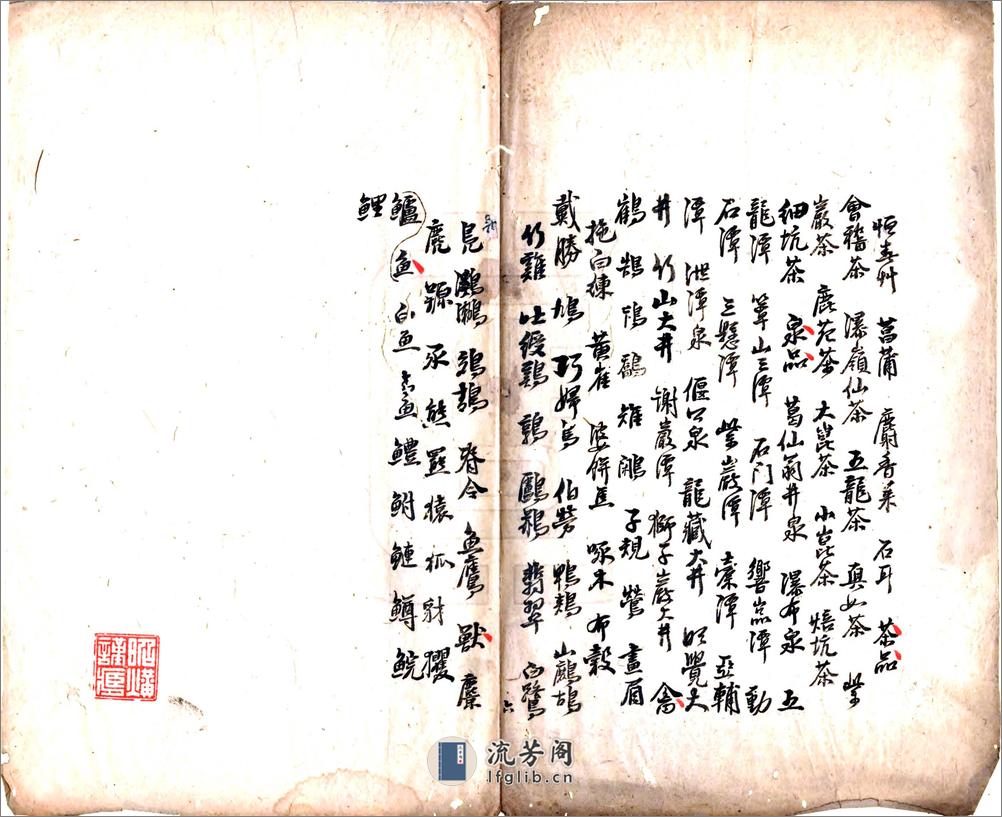 恒春艸 菖蒲 麝香菜 石耳 茶品
會稽茶 瀑嶺仙茶 五龍茶 真如茶 紫
巖茶 鹿苑茶 大崑茶 小崑茶 焙坑茶
細坑茶 泉品 葛仙翁井泉 瀑布泉 五
龍潭 箄山三潭 石门潭 響潭 動
石潭 三懸潭 紫巖潭 潭 亞輔
潭 泄潭泉 偃公泉 龍藏大井 明覺大
井 竹山大井 谢巖潭 獅子巖大井 禽
鶴 鵲 鴇 鷂 雉 鴻 子規 鶯 畫眉
拖白練 黄雀 婆餅焦 啄木 布穀
戴勝 鳩 巧婦鳥 伯勞 鴨鵊 山鷓鴣
竹雞 吐綬鷄 鶉 鷗 鵝 翡翠 白鷺
六
鳧 鸂鶒 鴻鵠 脊令 鱼鷹 獸 麋
鹿 豕 熊 羆 猿 狐 豺 玃
鱸 鱼 白鱼 鱼 鱧 鮒 鰱 鱒 鯇
鲤
流芳阁
lfglib.cn